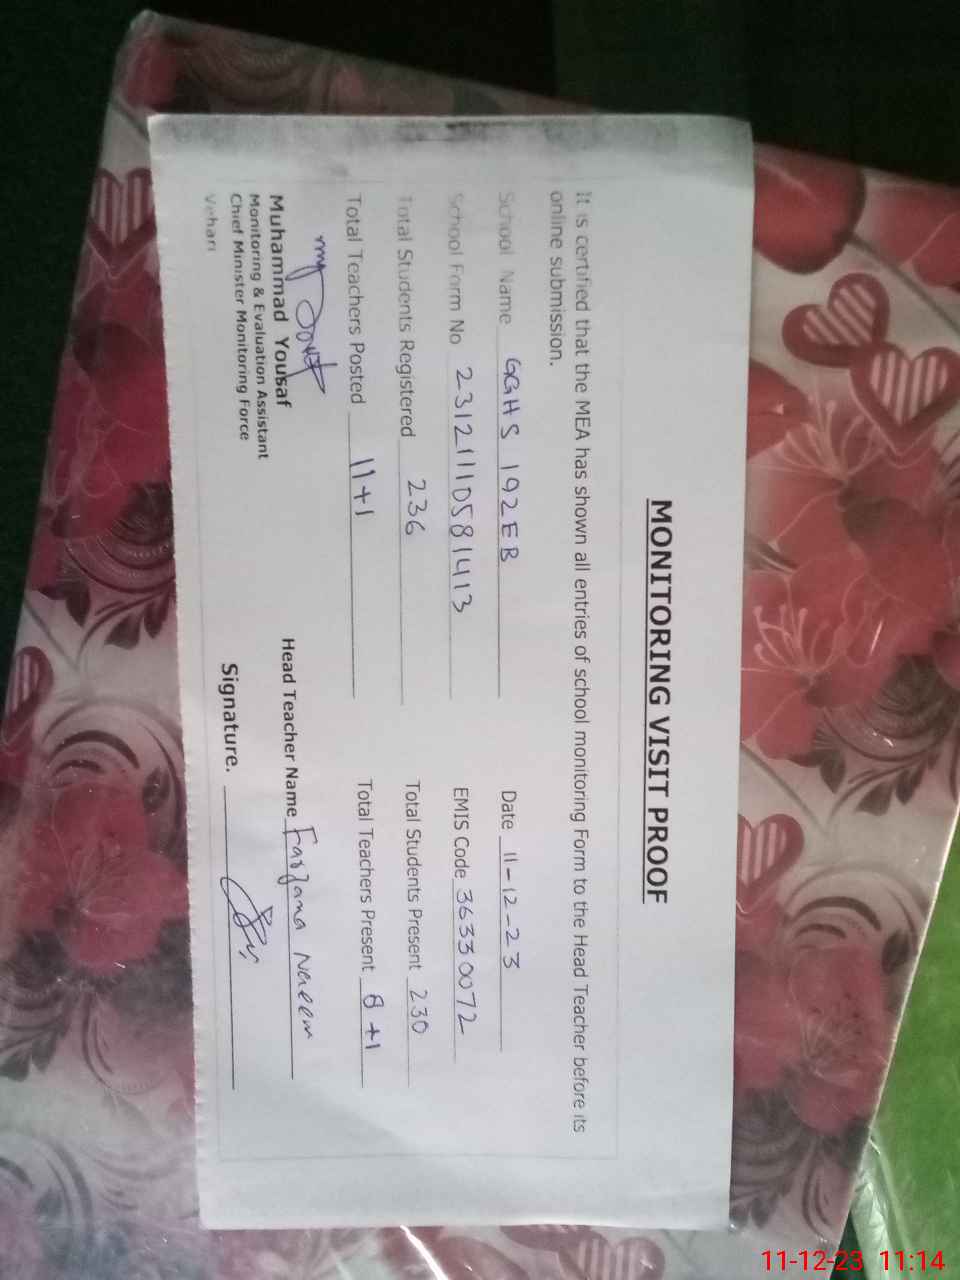 MONITORING VISIT PROOF
It is certified that the MEA has shown all entries of school monitoring Form to the Head Teacher before its
online submission.
School Name GGHS 192EB Date 11-12-23
School Form No 23121110581413 EMIS Code 36330072
Total Students Registered 236 Total Students Present 230
Total Teachers Posted 11+1 Total Teachers Present 8+1
Muhammad Yousaf
Monitoring & Evaluation Assistant
Chief Minister Monitoring Force
Vehari
Head Teacher Name Farzana Naeem
Signature.
11-12-23 11:14